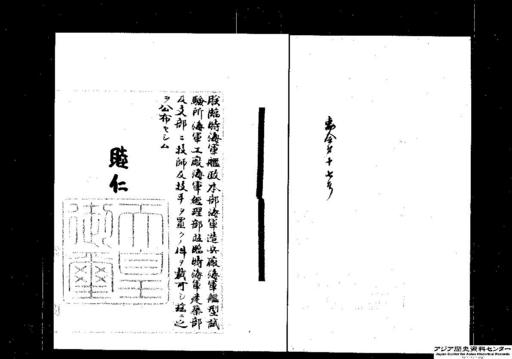 勅令第十七号
朕臨時海軍艦政本部海軍造兵廠海軍艦型試
験所海軍工廠海軍経理部竝臨時海軍建築部
及支部ニ技師及技手ヲ置クノ件ヲ裁可シ茲ニ之
ヲ公布セシム
睦仁
天皇
御璽
アジア歴史資料センター
Japan Center for Asian Historical Records